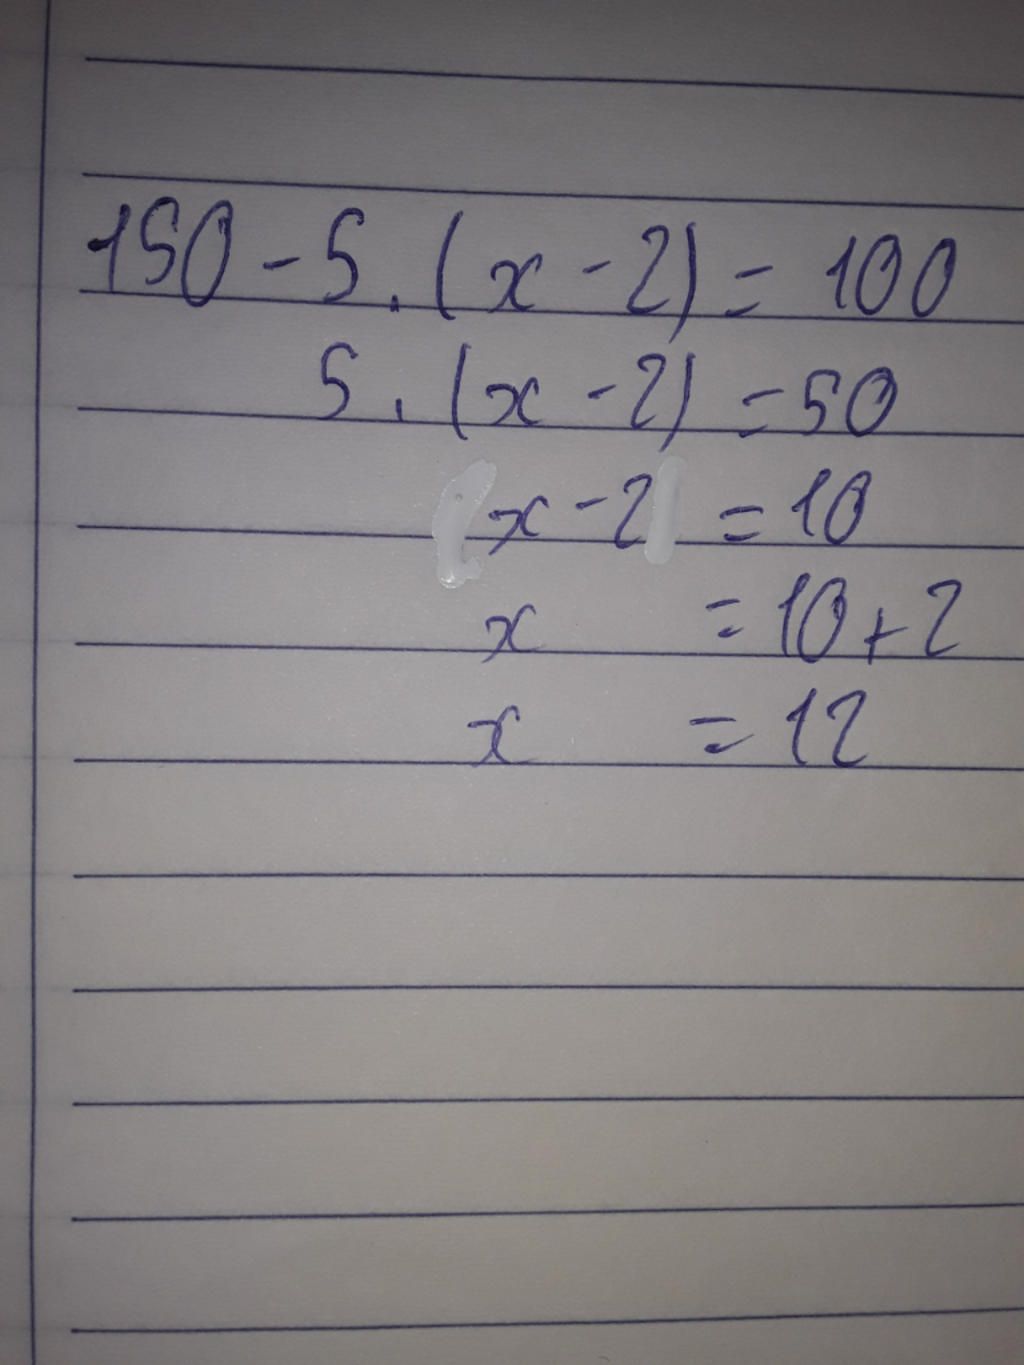 150 - 5 . (x - 2) = 100
5 . (x - 2) = 50
x - 2 = 10
x = 10 + 2
x = 12